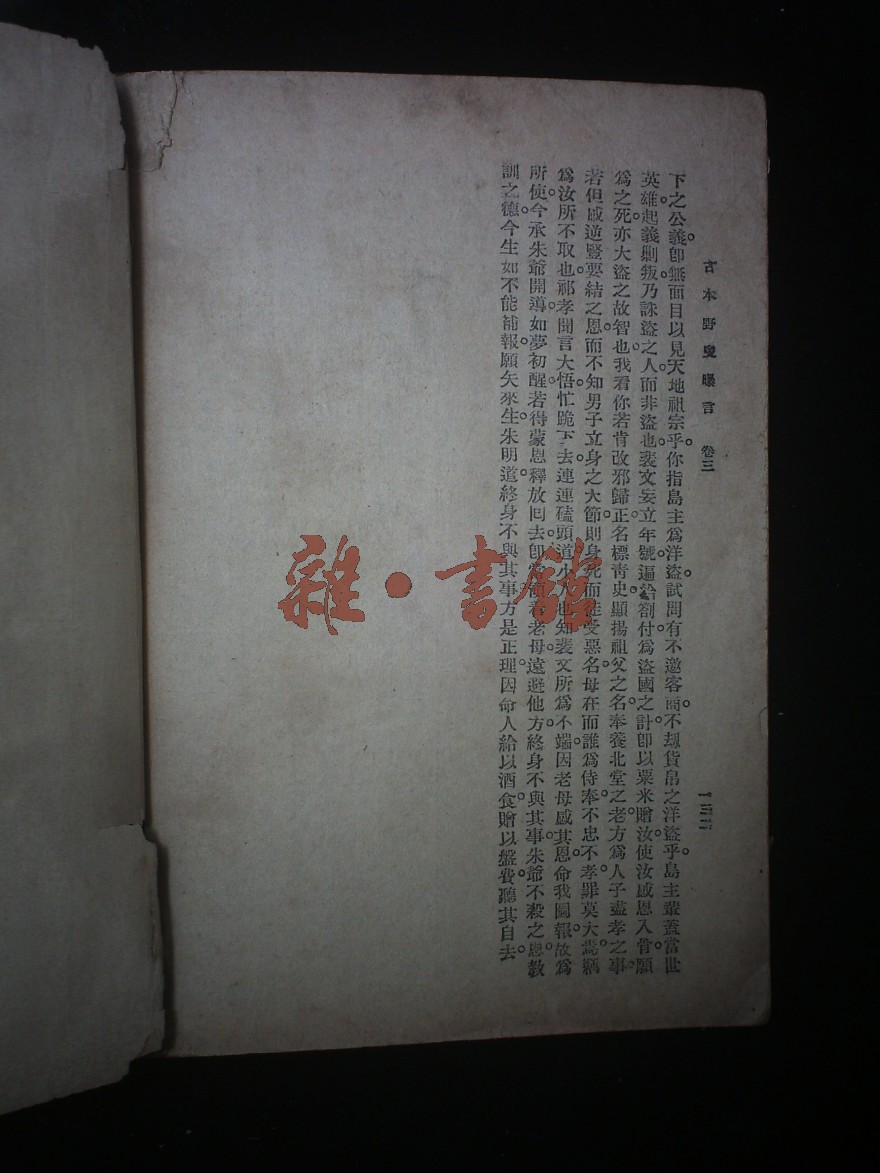 古本野叟曝言 卷三 一三二
下之公義。卽無面目以見天地祖宗乎。你指島主爲洋盜。試問有不邀客商。不刼貨帛之洋盜乎。島主輩葢當世
英雄。起義剿叛。乃誅盜之人。而非盜也。裴文妄立年號。遍給劄付。爲盜國之計。卽以粟米贈汝。使汝感恩入骨。願
爲之死。亦大盜之故智也。我看你若肯改邪歸正。名標靑史。顯揚祖父之名。奉養北堂之老。方爲人子盡孝之事。
若但感逆豎要結之恩。而不知男子立身之大節。則身死而徒受惡名。母在而誰爲侍奉。不忠不孝。罪莫大焉。竊
爲汝所不取也。祁孝聞言大悟。忙跪下去。連連磕頭道。小人也知裴文所爲不端。因老母感其恩。命我圖報。故爲
所使。今承朱爺開導。如夢初醒。若得蒙恩釋放回去。卽當 老母。遠避他方。終身不與其事。朱爺不殺之恩。敎
訓之德。今生如不能補報。願矢來生。朱明道。終身不與其事。方是正理。因命人給以酒食。贈以盤費。聽其自去。
雜·書館